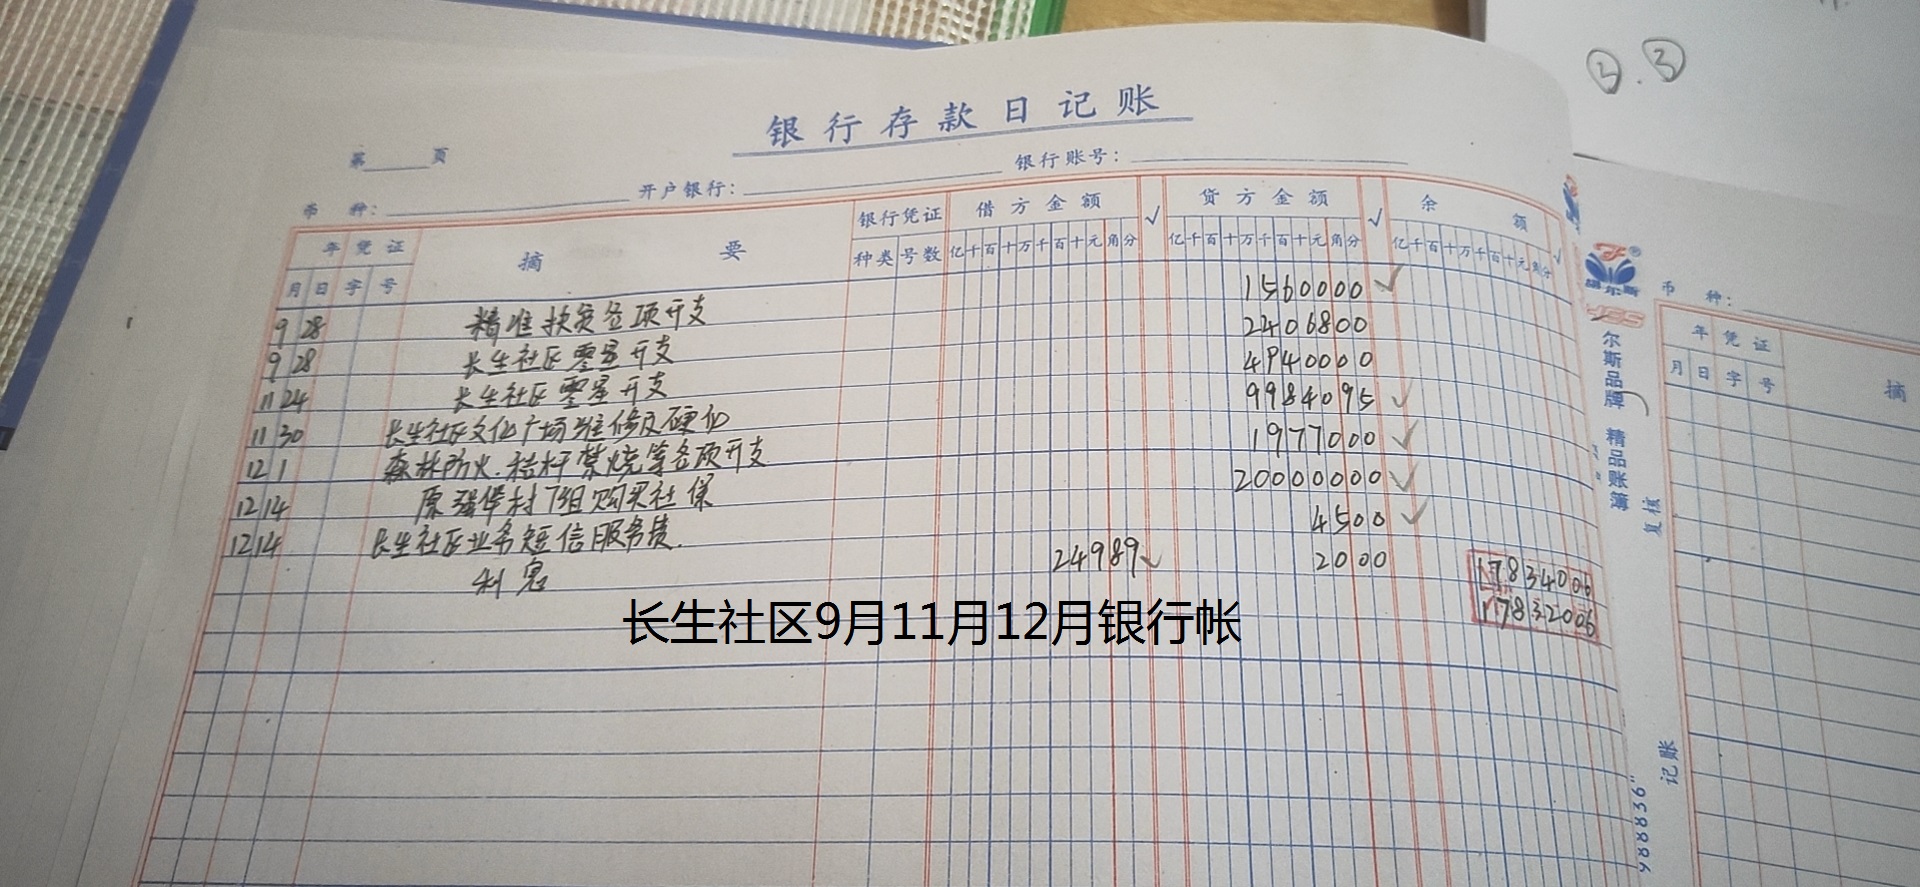 ③.③
银行存款日记账
第 页
开户银行: 银行账号:
币 种:
年 凭证 摘 要 银行凭证 借方金额 √ 贷方金额 √ 余 额 √
月 日 字 号 种类 号数 亿千百十万千百十元角分 亿千百十万千百十元角分 亿千百十万千百十元角分
9 28 精准扶贫各项开支 1560000 ✓
9 28 长生社区零星开支 2406800
11 24 长生社区零星开支 4940000
11 30 长生社区文化广场维修及硬化 9984095 ✓
12 1 森林防火.秸秆禁烧等各项开支 1977000 ✓
12 14 原强堡村7组购买社保 20000000 ✓
12 14 长生社区业务短信服务费. 4500 ✓
利息 24989 ✓ 2000 17834006
17832006
长生社区9月11月12月银行帐
尔斯品牌 精品账簿
复核
记账
币 种:
年 凭证 摘
月 日 字 号